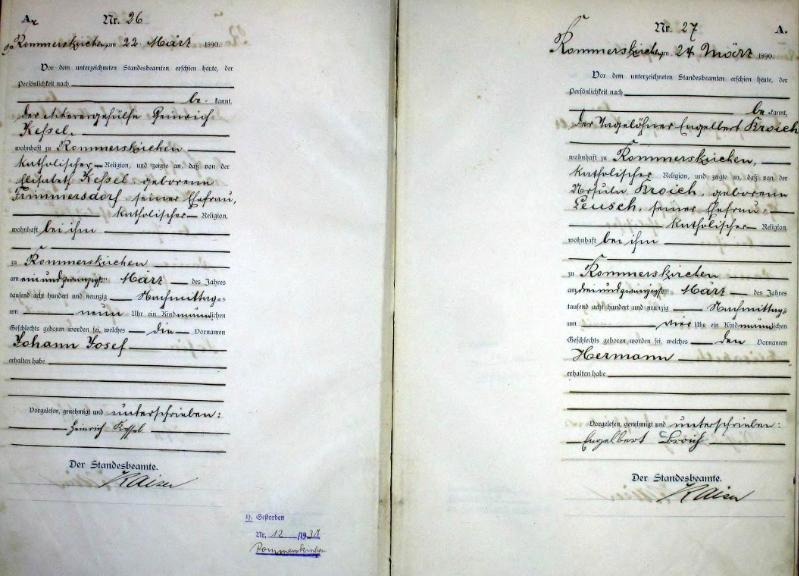 A. Nr. 26
Rommerskirchen am 22 März 1890.
Vor dem unterzeichneten Standesbeamten erschien heute, der
Persönlichkeit nach
be- kannt,
der Heinrich
Kessel
wohnhaft zu Rommerskirchen
katholischer Religion, und zeigte an, daß von der
Elisabeth Kessel geborenen
Timmersdorf seiner Ehefrau,
katholischer Religion,
wohnhaft bei ihm
zu Rommerskirchen
am einundzwanzigsten März des Jahres
tausend acht hundert und neunzig Nachmittags
um neun Uhr ein Kind männlichen
Geschlechts geboren worden sei, welches den Vornamen
Johann Josef
erhalten habe
Vorgelesen, genehmigt und unterschrieben:
Heinrich Kessel
Der Standesbeamte.
Kaiser
H. Gestorben
Nr. 12 /1938
Rommerskirchen
Nr. 27 A.
Rommerskirchen am 24 März 1890.
Vor dem unterzeichneten Standesbeamten erschien heute, der
Persönlichkeit nach
be kannt,
der Tagelöhner Engelbert Broich
wohnhaft zu Rommerskirchen,
katholischer Religion, und zeigte an, daß von der
Ursula Broich, geborenen
Leusch, seiner Ehefrau
katholischer Religion,
wohnhaft bei ihm
zu Rommerskirchen
am dreiundzwanzigsten März des Jahres
tausend acht hundert und neunzig Nachmittags
um vier Uhr ein Kind männlichen
Geschlechts geboren worden sei, welches den Vornamen
Hermann
erhalten habe
Vorgelesen, genehmigt und unterschrieben:
Engelbert Broich
Der Standesbeamte.
Kaiser